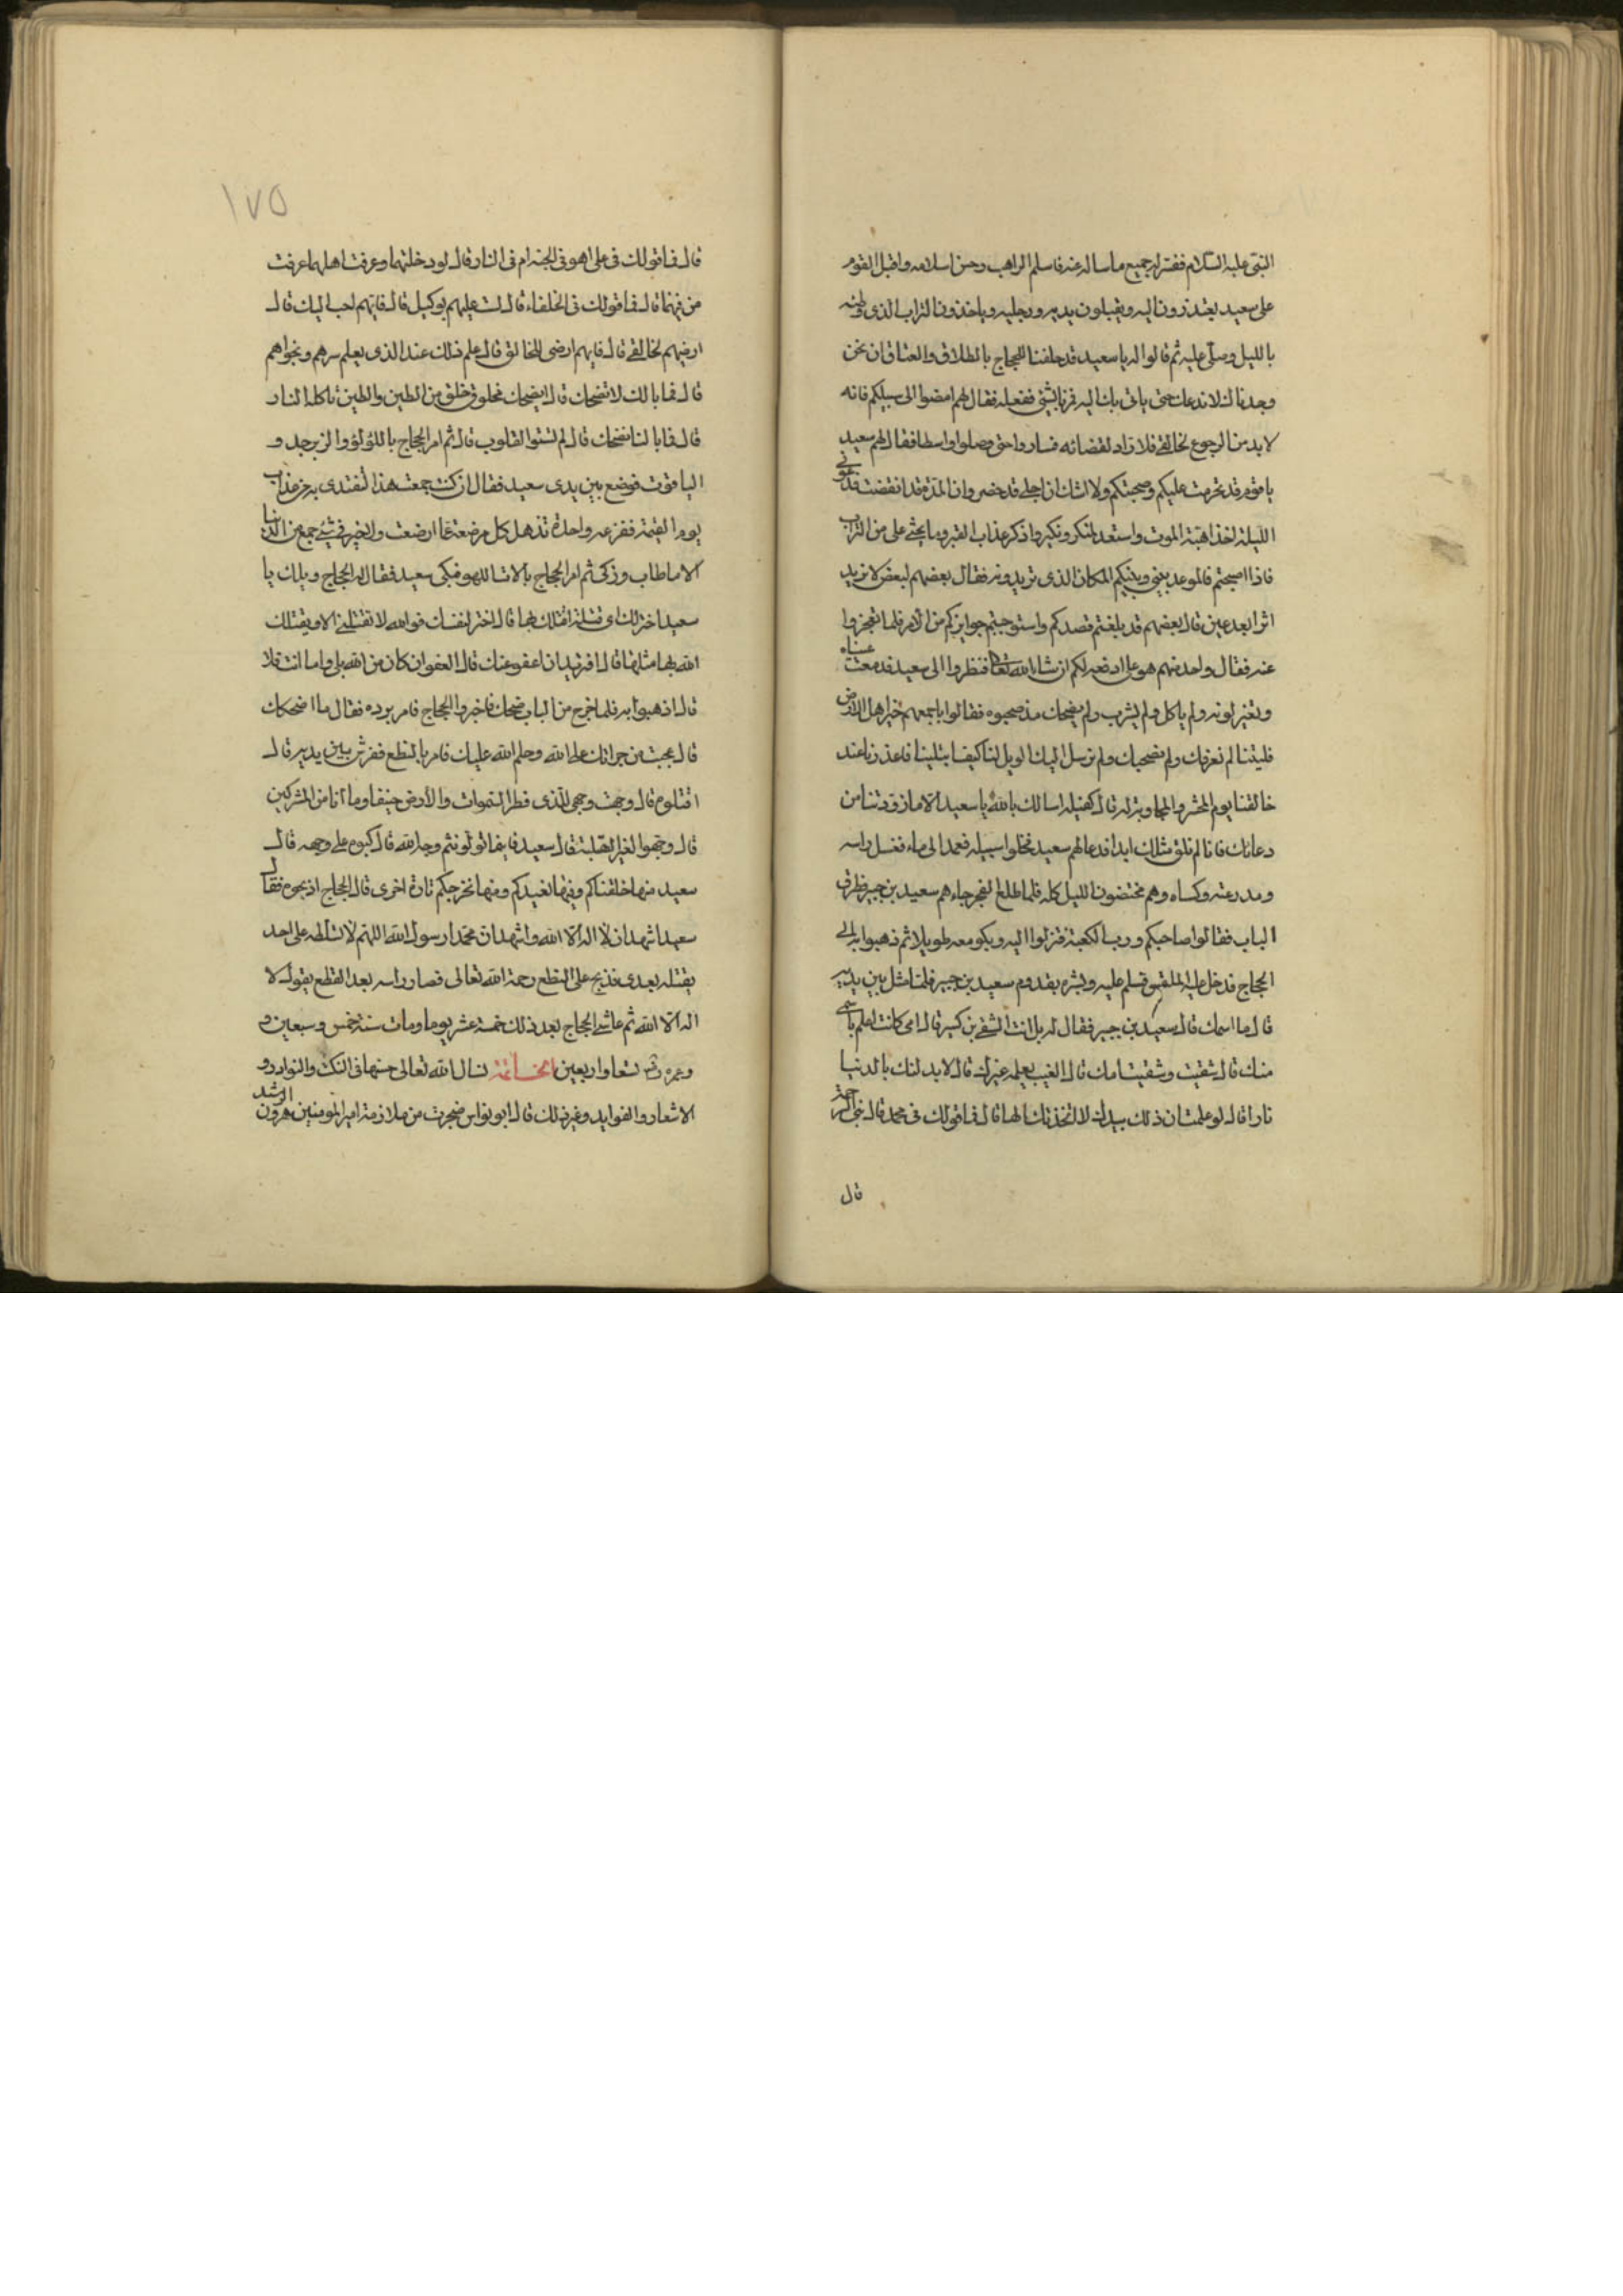 النبي عليه السلام ففسر له جميع ما ساله عنه فاسلم الراهب وحسن اسلامه واقبل القوم
على سعيد يعتذرون اليه ويقبلون يديه ورجليه وياخذون التراب الذي وطئه
بالليل وصلى عليه ثم قالوا له يا سعيد قد حلفنا للحجاج بالطلاق والعتاق ان نحن
وجدناك لا ندعك حتى ياتي بك اليه فمرنا بشئ ففعله فقال لهم امضوا الى سبيلكم فانه
لا بد من الرجوع لخالقي فلا راد لقضائه فساروا حتى وصلوا واسطا فقال لهم سعيد
يا قوم قد تحرمت عليكم وصحبتكم ولا اشك ان اجلي قد حضر وان المدة قد انقضت فدعوني
الليلة لخذ اهبة الموت واستعد لمنكر ونكير واذكر عذاب القبر وما يحثى على من التراب
فاذا اصبحتم فالموعد بيني وبينكم المكان الذي تريدونه فقال بعضهم لبعض لا نريد
اثرا بعد عين قال بعضهم قد بلغتم قصدكم واستوجبتم جوايزكم من الامر فلا تعجزوا
عنه فقال واحد منهم هو علي ادفعه لكم ان شاء الله تعالى فنظروا الى سعيد قد دمعت عيناه
وتغير لونه ولم ياكل ولم يشرب ولم يضحك مذ صحبوه فقالوا باجمعهم خير اهل الارض
فليتنا لم نعرفك ولم نصحبك ولم نرسل اليك الويل لنا كيف ابتلينا فاعذرنا عند
خالقنا يوم الحشر قال كفيله اسالك بالله يا سعيد الا ما زودتنا من
دعائك فانا لم نلق مثلك ابدا فدعا لهم سعيد فخلوا سبيله فعمد الى ماء فغسل راسه
ومدرعته وكساه وهم مختضون الليل كله فلما طلع الفجر جاءهم سعيد بن جبير فطرق
الباب فقالوا صاحبكم ورب الكعبة فنزلوا اليه وبكوا معه طويلا ثم ذهبوا به الى
الحجاج فدخل عليه الملتمس فسلم عليه وبشره بقدوم سعيد بن جبير فلما مثل بين يديه
قال ما اسمك قال سعيد بن جبير فقال له بل انت الشقي بن كسير قال امي كانت اعلم باسمي
منك قال شقيت وشقيت امك قال الغيب يعلمه غيرك قال لابدلنك بالدنيا
نارا قال لو علمت ان ذلك بيدك لاتخذتك الها قال فما قولك في محمد قال نبي الرحمة
قال
١٧٥
قال فما قولك في علي اهو في الجنة ام في النار قال لو دخلتها وعرفت اهلها عرفت
من فيها قال فما قولك في الخلفاء قال لست عليهم بوكيل قال فايهم احب اليك قال
ارضيهم لخالقي قال فايهم ارضى للخالق قال علم ذلك عند الذي يعلم سرهم ونجواهم
قال فما بالك لا تضحك قال ايضحك مخلوق خلق من الطين والطين تاكله النار
قال فما بالنا نضحك قال لم تستو القلوب قال ثم امر الحجاج باللؤلؤ والزبرجد و
الياقوت فوضع بين يدي سعيد فقال ان كنت جمعت هذا لتفتدى به من عذاب
يوم القيمة ففزعه واحدة تذهل كل مرضعة عما ارضعت ولا خير في شئ جمع من الدنيا
الا ما طاب وزكى ثم امر الحجاج بالات اللهو فبكى سعيد فقال له الحجاج ويلك يا
سعيد اختر لك اي قتلة اقتلك بها قال اختر لنفسك فوالله لا تقتلني الا ويقتلك
الله بها مثلها قال افتريد ان اعفو عنك قال العفو ان كان من الله بلى واما انت فلا
قال اذهبوا به فلما خرج من الباب ضحك فاخبروا الحجاج فامر برده فقال ما اضحكك
قال عجبت من جراتك على الله وحلم الله عليك فامر بالنطع ففرش بين يديه قال
اقتلوه قال وجهت وجهي للذي فطر السموات والارض حنيفا وما انا من المشركين
قال وجهوا لغير القبلة قال سعيد فاينما تولوا فثم وجه الله قال كبوه على وجهه قال
سعيد منها خلقناكم وفيها نعيدكم ومنها نخرجكم تارة اخرى قال الحجاج اذبحوه فقال
سعيد اشهد ان لا اله الا الله واشهد ان محمدا رسول الله اللهم لا تسلطه على احد
يقتله بعدى فذبح على النطع رحمة الله تعالى فصار راسه بعد القطع يقول لا
اله الا الله ثم عاش الحجاج بعد ذلك خمسة عشر يوما ومات سنة خمس وسبعين و
وعمره تسعا واربعين الخاتمة نسال الله تعالى حسنها في النكت والنوادر و
الاشعار والفوايد وغير ذلك قال ابو نواس ضجرت من ملازمة امير المومنين هرون الرشيد